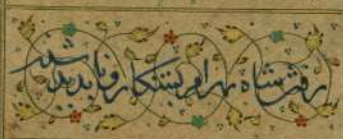 رفتن شاه بهرام بشکار و ناپدید شدن